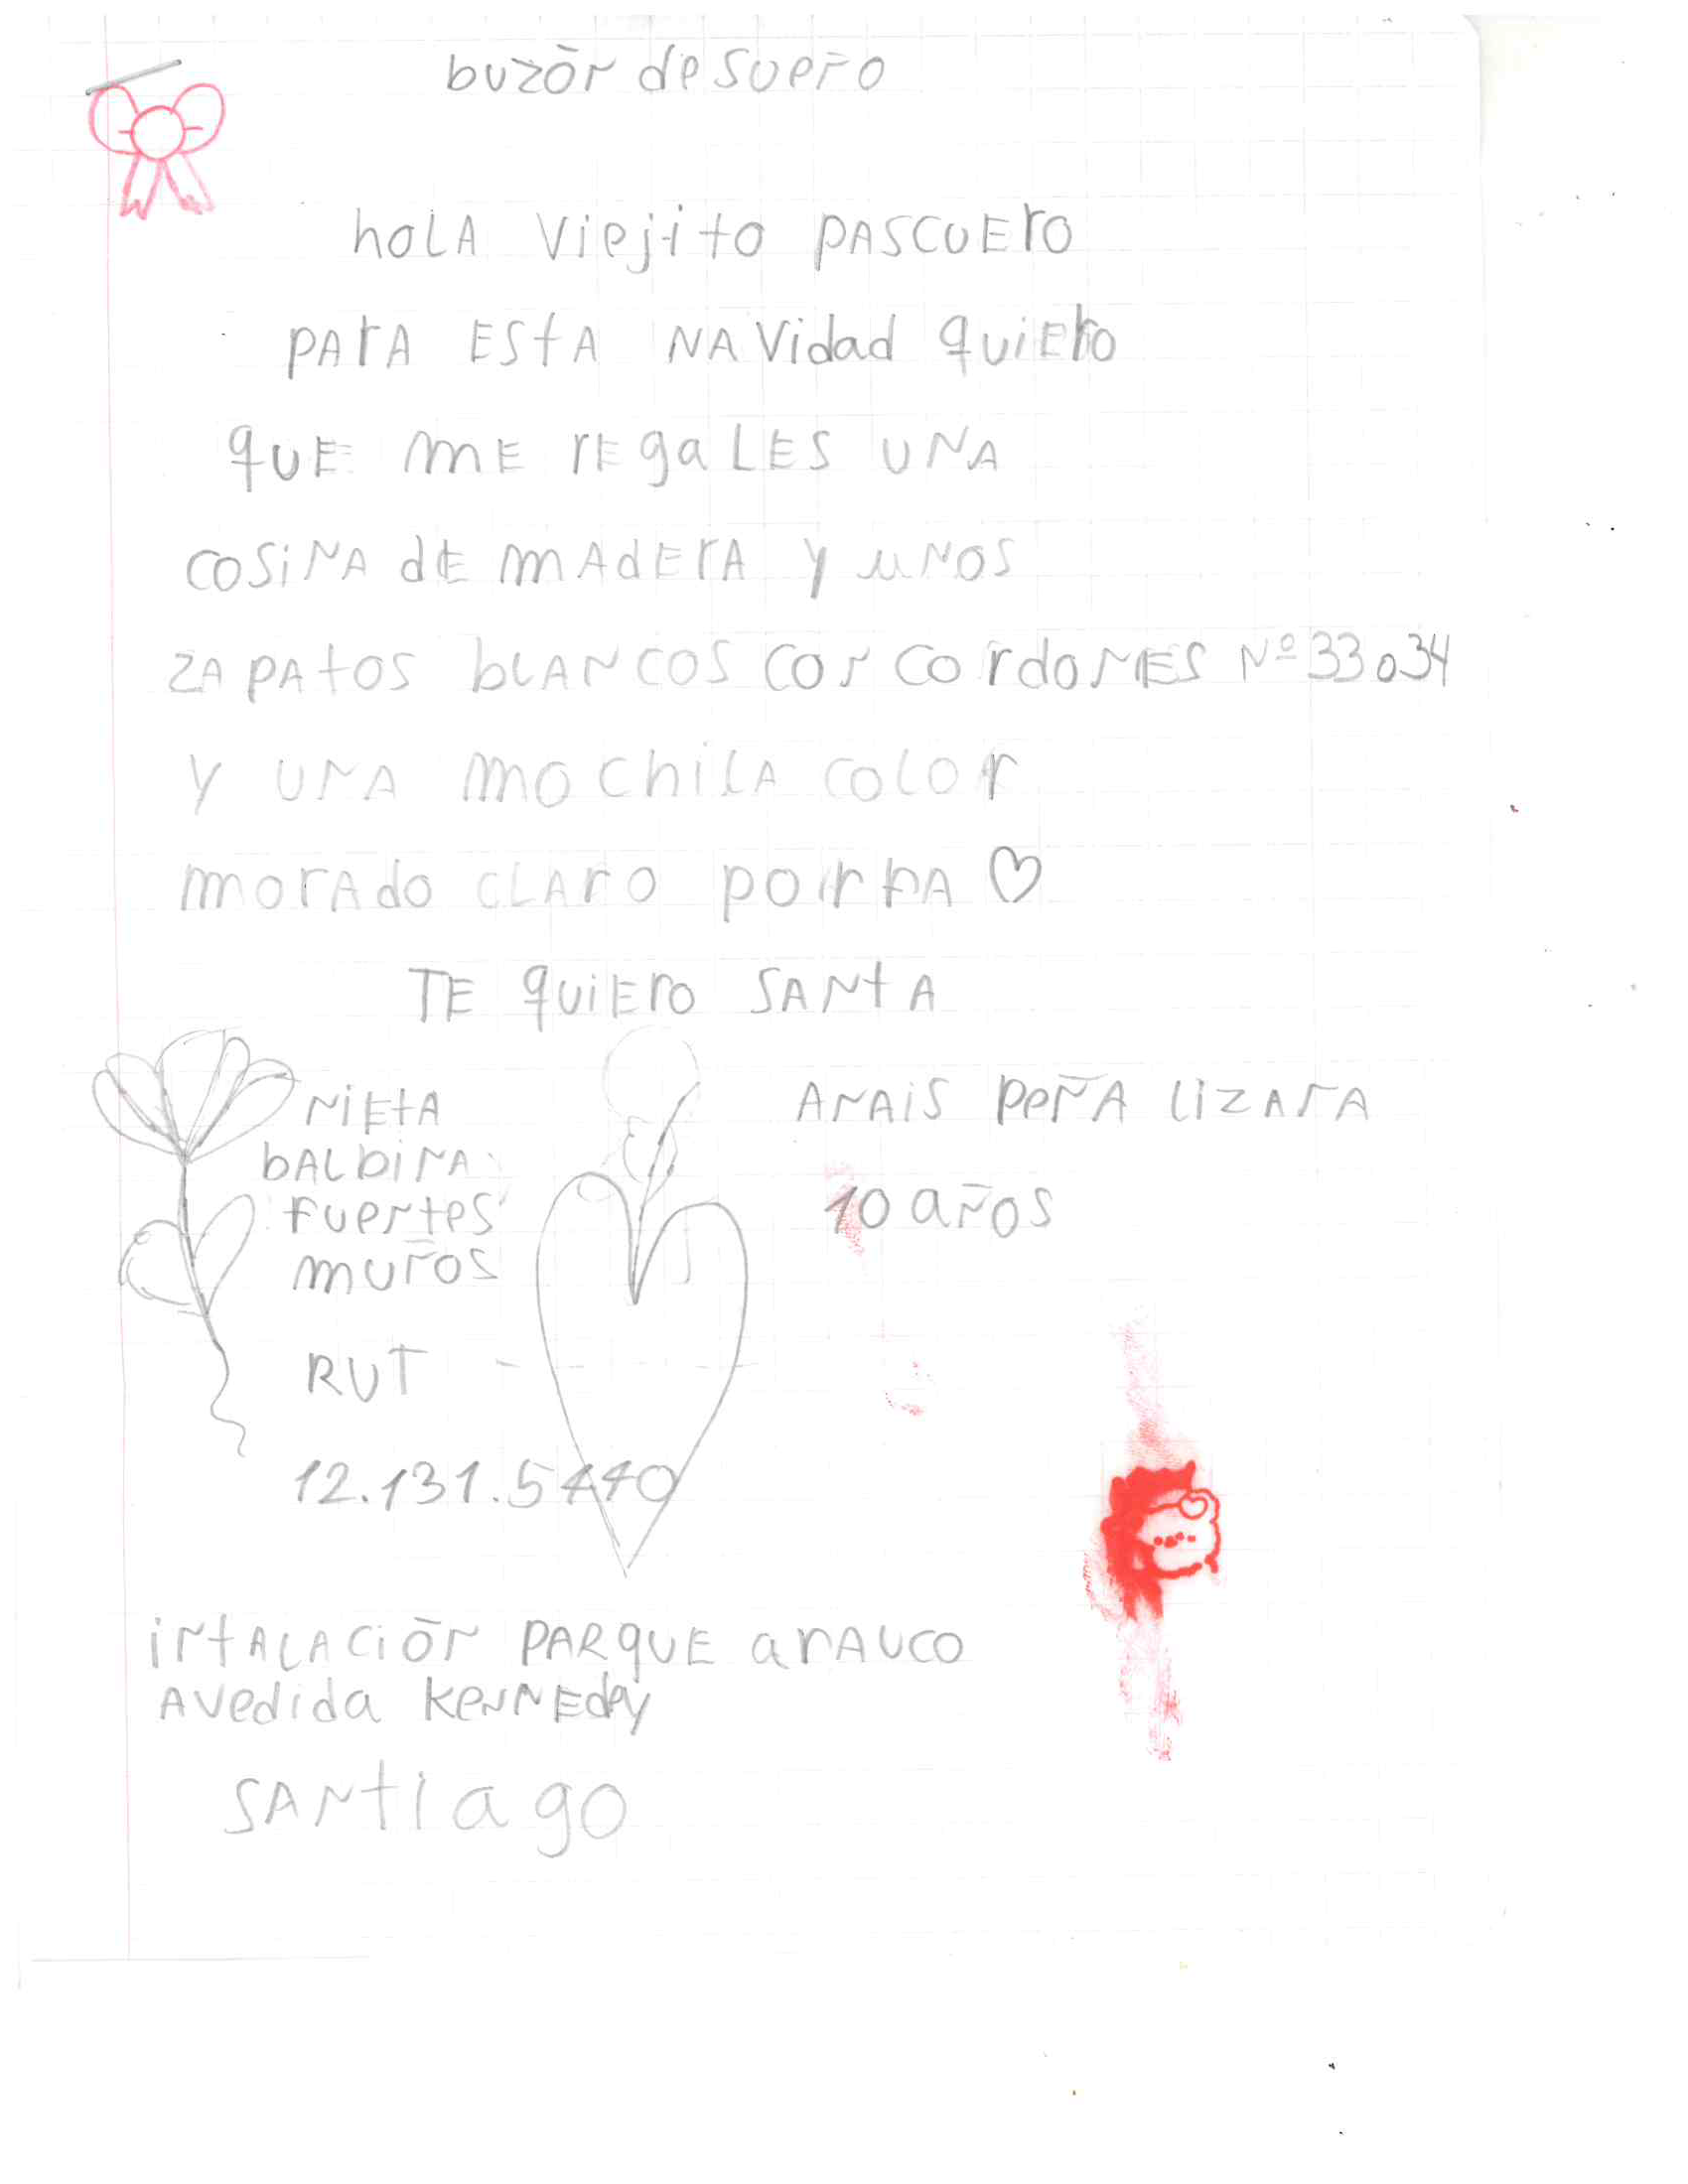 buzón de sueño
hola viejito pascuero
para esta navidad quiero
que me regales una
cosina de madera y unos
zapatos blancos con cordones Nº 33 o 34
y una mochila color
morado claro porfa ♡
TE quiero SANtA
Nieta
balbina
fuertes
muños
Anais peña lizana
10 años
RUT
12.131.5440
intalación PARque arauco
Avedida Kennedy
Santiago